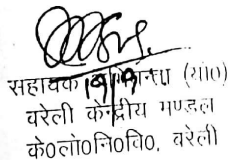 सहायक अभियन्ता (यां0)
19/9
बरेली केन्द्रीय मण्डल
के0लो0नि0वि0, बरेली